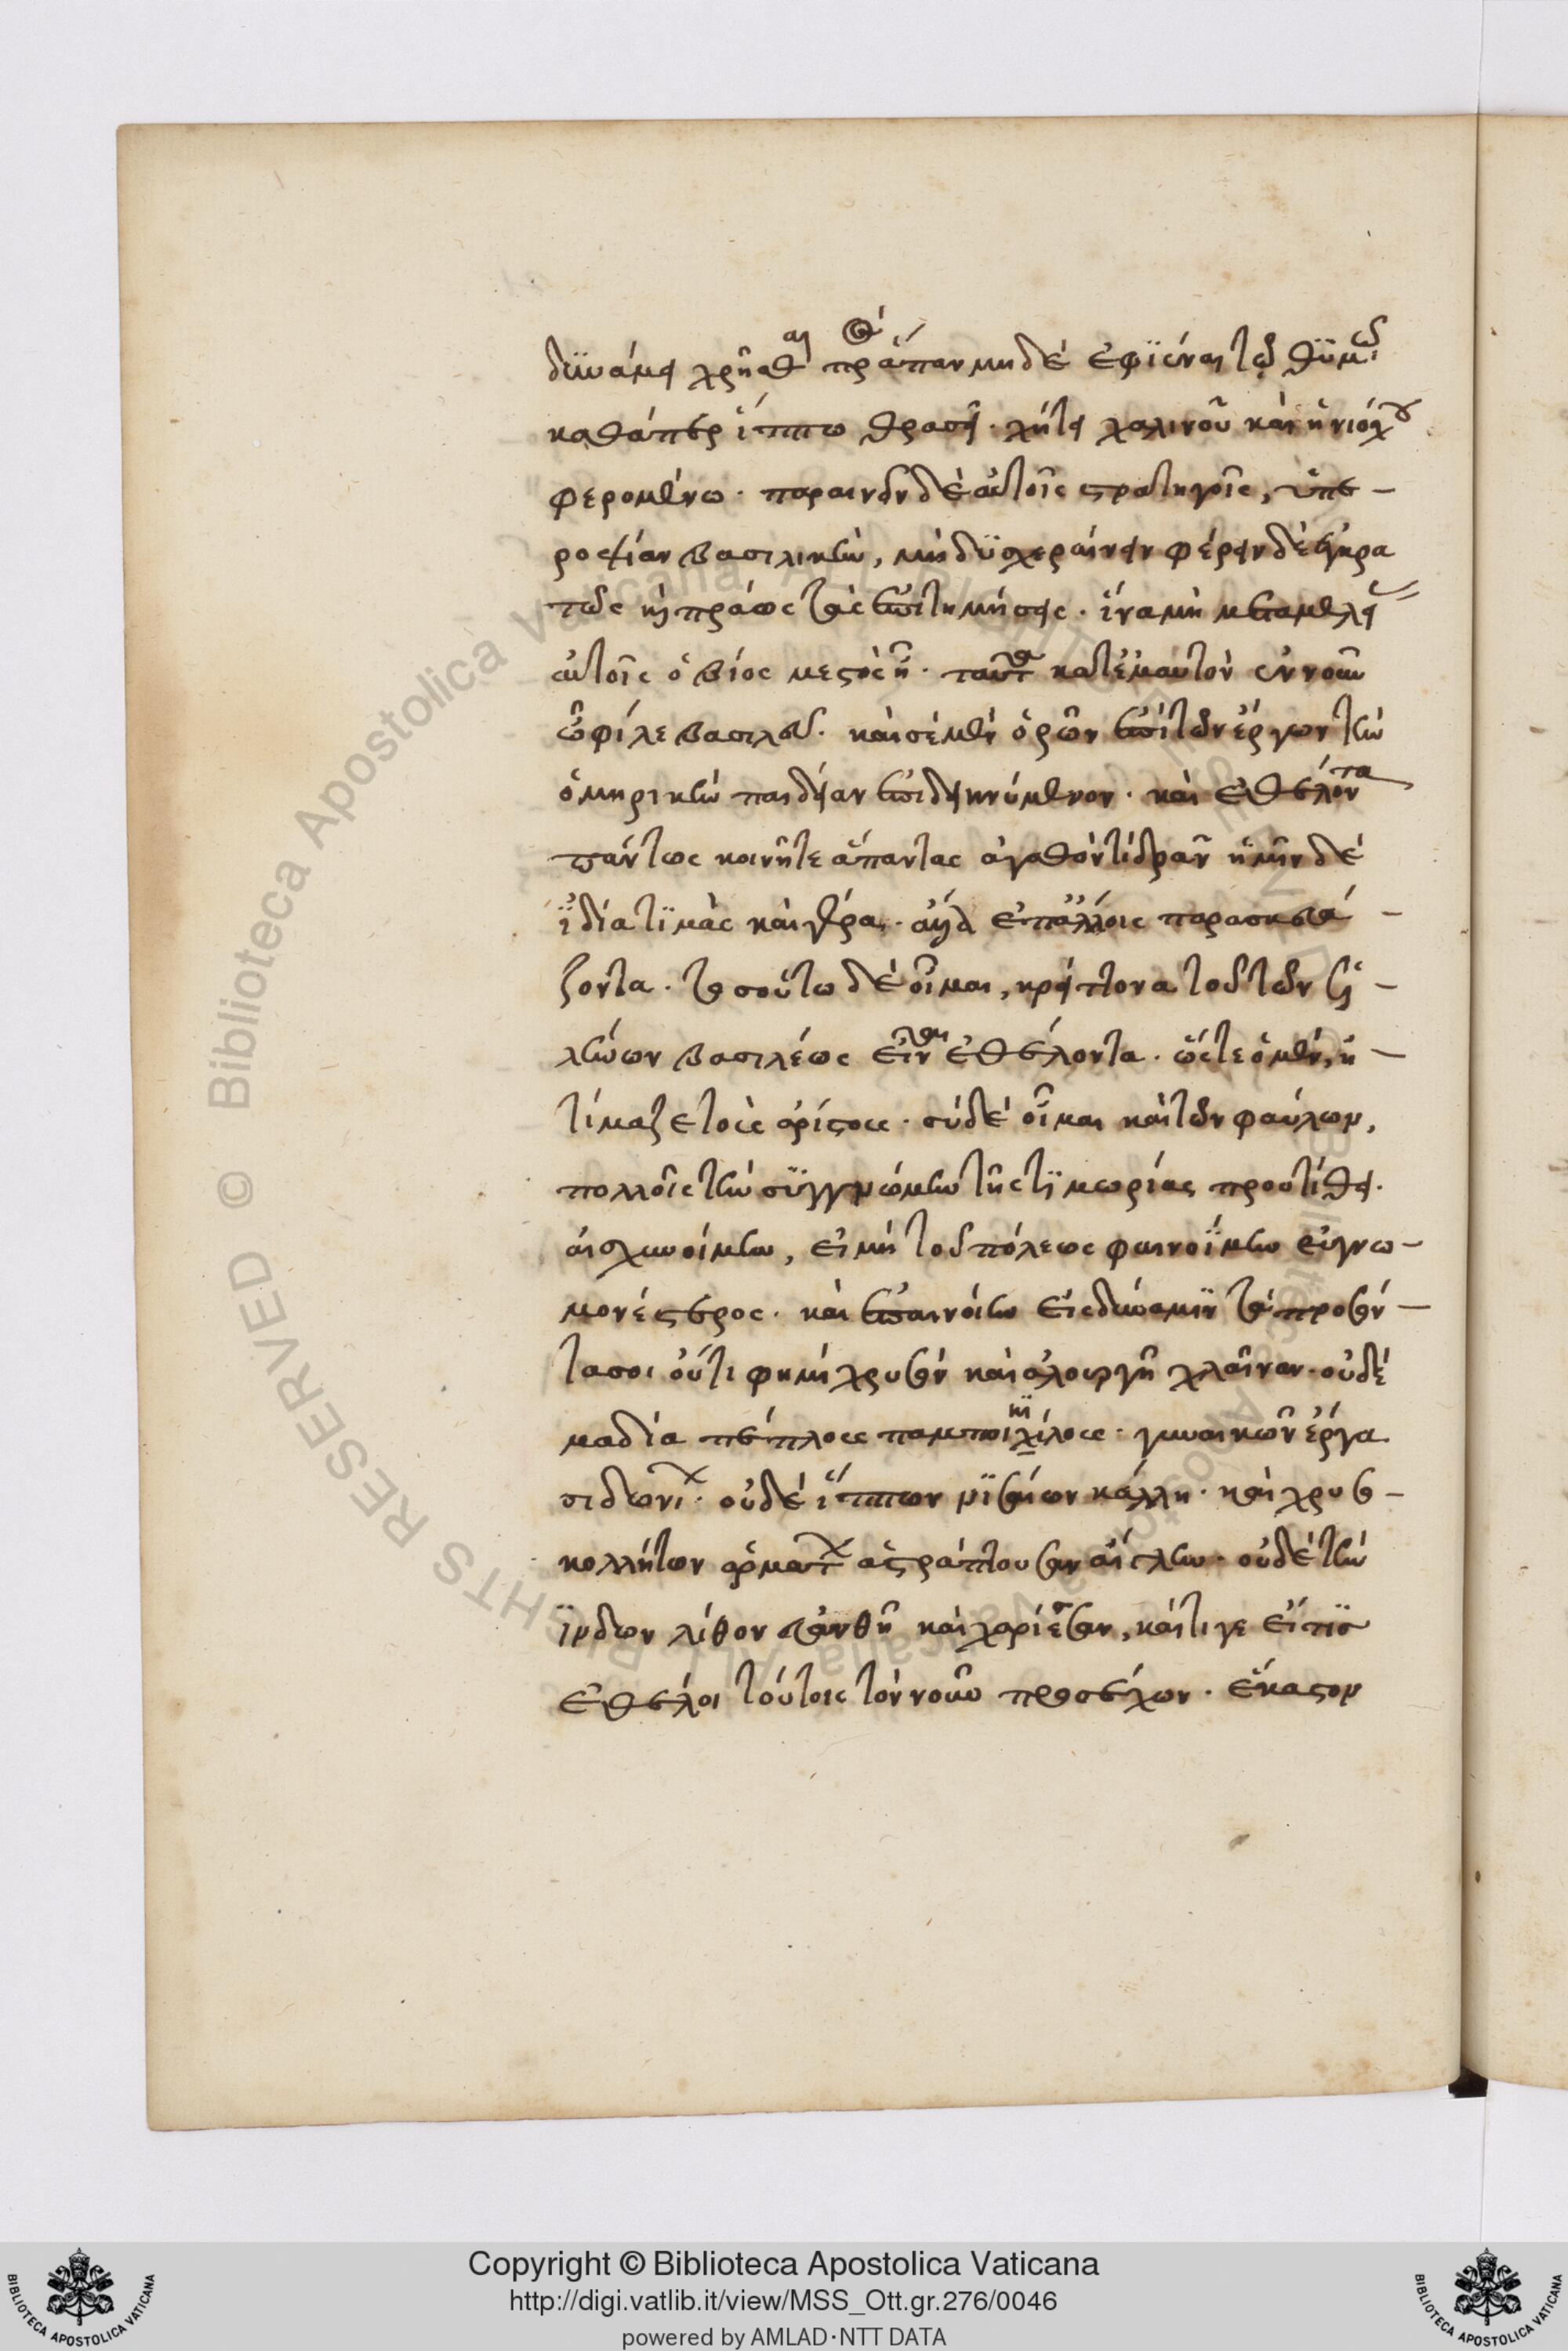 δυνάμει χρῆσθαι πρὸς ἅπαν μηδὲ ἐφϊέναι τῷ θϋμῷ
καθάπερ ἵππω θρασεῖ· χήτει χαλινοῦ καὶ ἡνιόχου
φερομένω· παραινῶν δὲ αὐτοῖς στρατηγοῖς, ὑπε-
ροψίαν βασιλικὴν, μὴ δϋσχεραίνειν φέρειν δὲ ἐγκρα
τῶς καὶ πράως τὰς ἐπιτιμήσεις· ἵνα μὴ μεταμελεί
αὐτοῖς ὁ βίος μεστὸς ἦ· ταῦτα κατ' ἐμαυτὸν ἐννοῶν
ὦ φίλε βασιλεῦ· καὶ σὲ μὲν ὁρῶν ἐπὶ τῶν ἔργων τὴν
ὁμηρικὴν παιδείαν ἐπιδεικνύμενον· καὶ ἐθέλοντα
πάντως κοινῆ τε ἅπαντας ἀγαθόν τι δρᾶν ἡμῖν δὲ
ἰδία τϊμὰς καὶ γέρα· ἄλλα ἐπ' ἄλλοις παρασκευά-
ζοντα· τοσούτω δὲ οἶμαι, κρείττονα τοῦ τῶν ἑλ-
λήνων βασιλέως εἶναι ἐθέλοντα· ὥστε ὁ μὲν, ἠ-
τίμαζε τοὺς ἀρίστους· σὺ δὲ οἶμαι καὶ τῶν φαύλων,
πολλοῖς τὴν σϋγγνώμην τῆς τϊμωρίας προυτίθει·
αἰσχυνοίμην, εἰ μὴ τοῦ πόλεως φαινοΐμην εὐγνω-
μονέστερος· καὶ ἐπαινοίην εἰς δύναμϊν τά προσόν-
τα σοι οὔτι φημὶ χρυσὸν καὶ ἁλουργῆ χλαῖναν· οὐδὲ
μα δία πέπλους παμποικίλους· γυναικῶν ἔργα
σιδωνίων· οὐδὲ ἵππων νϊσαίων κάλλη· καὶ χρυσ-
κολλήτων ἁρμάτων ἀστράπτουσαν αἴγλην· οὐδὲ τὴν
ϊνδῶν λίθον εὐανθῆ καὶ χαρίεσσαν, καί τι γε εἴ τϊς
ἐθέλοι τούτοις τὸν νοῦν προσέχων· ἕκαστον
Copyright © Biblioteca Apostolica Vaticana
http://digi.vatlib.it/view/MSS_Ott.gr.276/0046
powered by AMLAD·NTT DATA